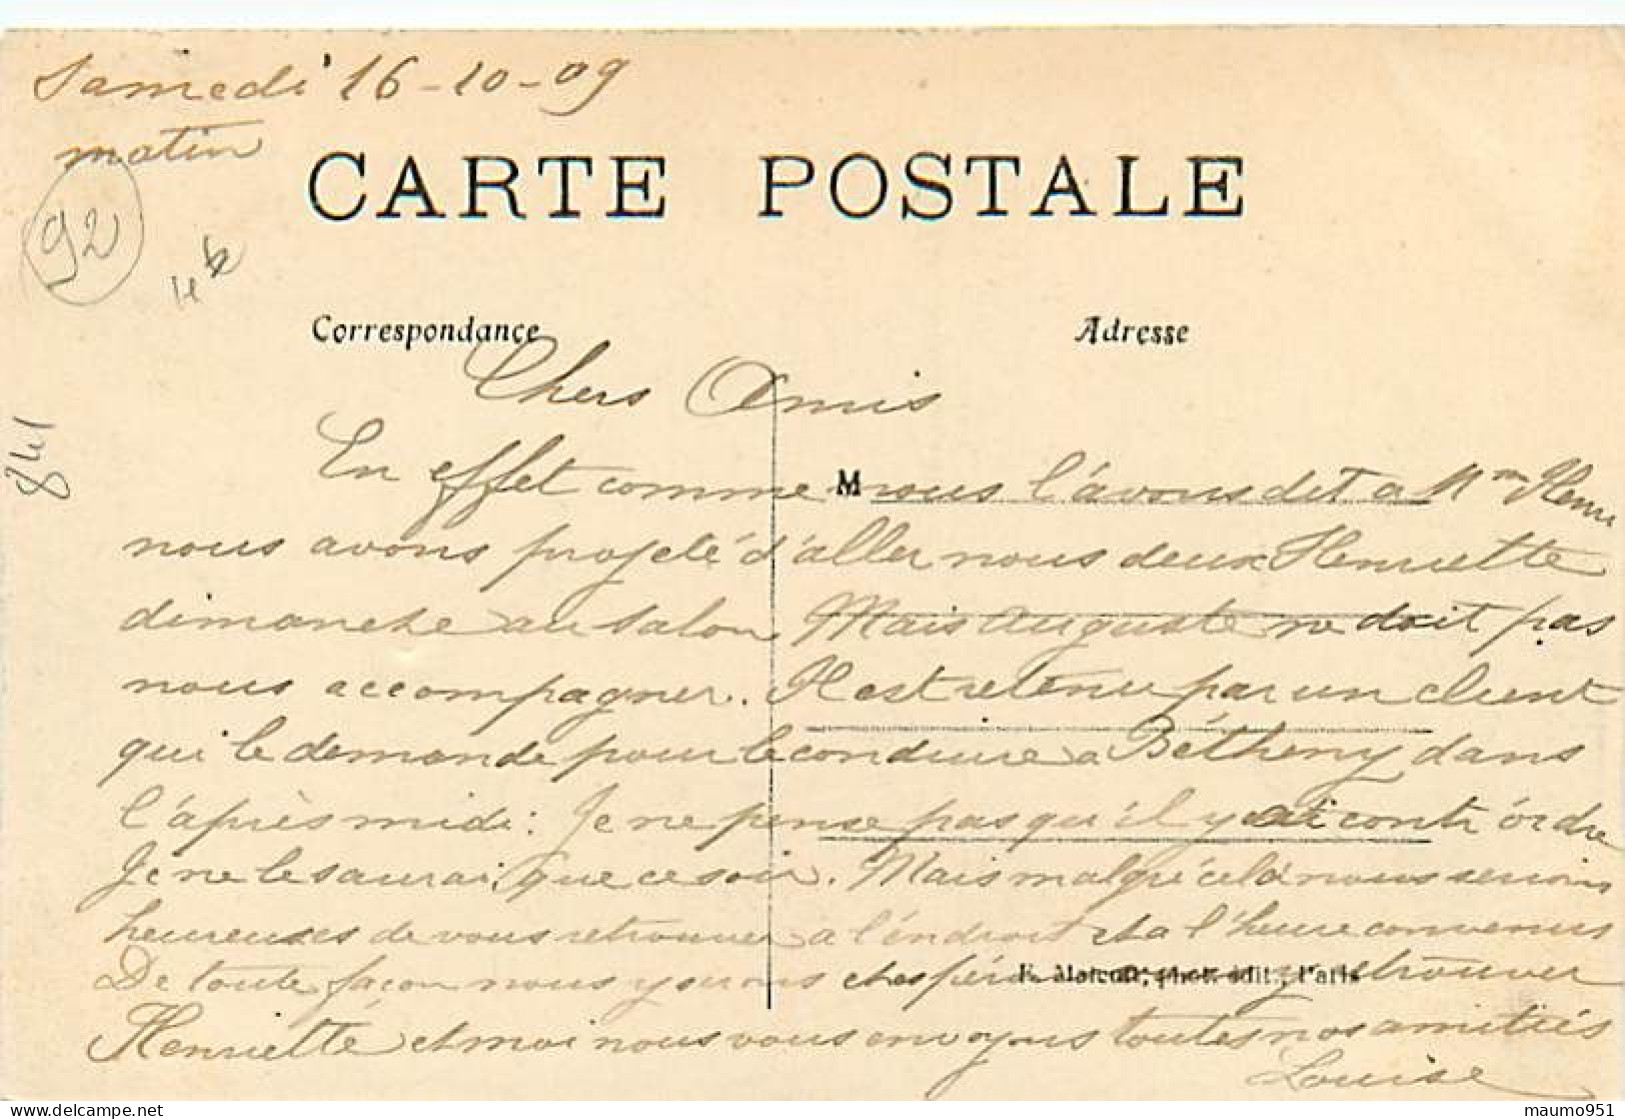 Samedi 16-10-09
matin
CARTE POSTALE
92
Correspondance
Adresse
Chers Amis
841
En effet comme nous l'avons dit a Mme Henri
M
nous avons projeté d'aller nous deux Henriette
dimanche au salon. Mais Auguste ne doit pas
nous accompagner. Il est retenu par un client
qui le demande pour le conduire a Bétheny dans
l'après midi. Je ne pense pas qu'il y ait contr'ordre
Je ne le saurai que ce soir. Mais malgré cela nous serions
heureuses de vous retrouver a l'endroit et a l'heure convenus
De toute façon nous y serons et espérons vous y trouver
E. Malcuit, phot. édit., Paris
Henriette et moi nous vous envoyons toutes nos amitiés
Louise
delcampe.net
maumo951